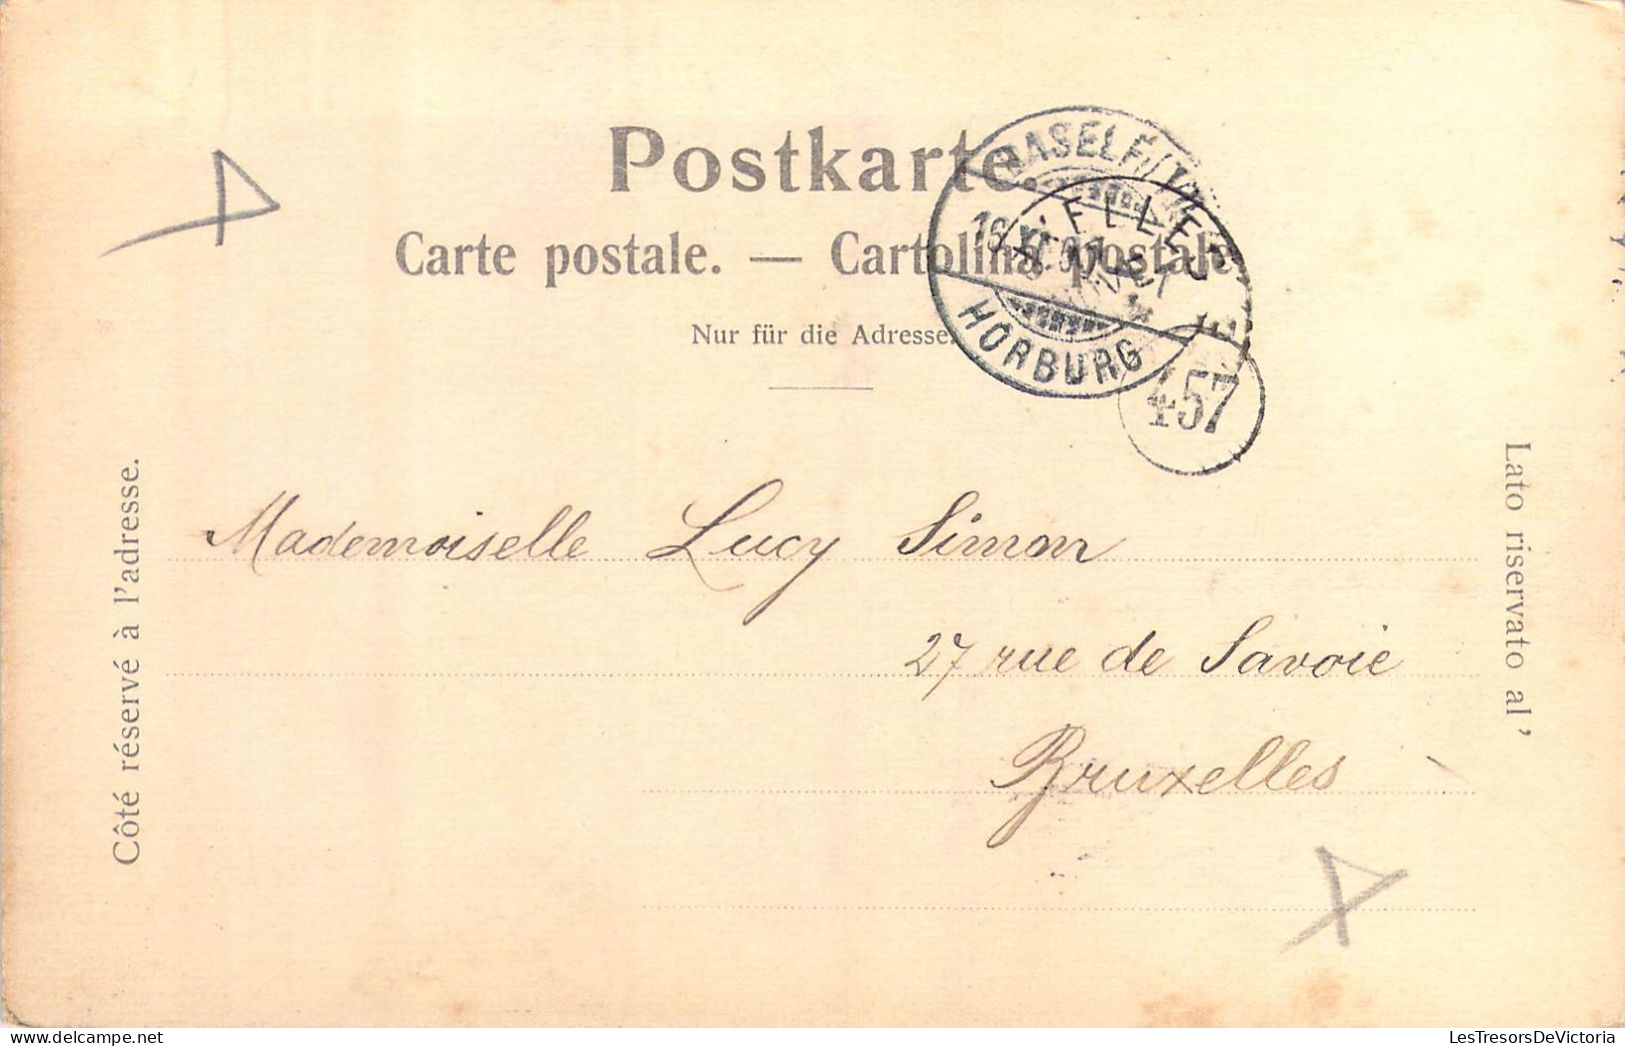 Postkarte.
Carte postale. — Cartolina postale
Nur für die Adresse.
HORBURG
457
Côté réservé à l'adresse.
Lato riservato al'
Mademoiselle Lucy Simon
27 rue de Savoie
Bruxelles
LesTresorsDeVictoria